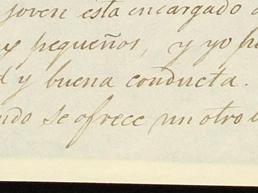 joven esta encargado
pequeños, y yo
y buena conducta.
se ofrece un otro